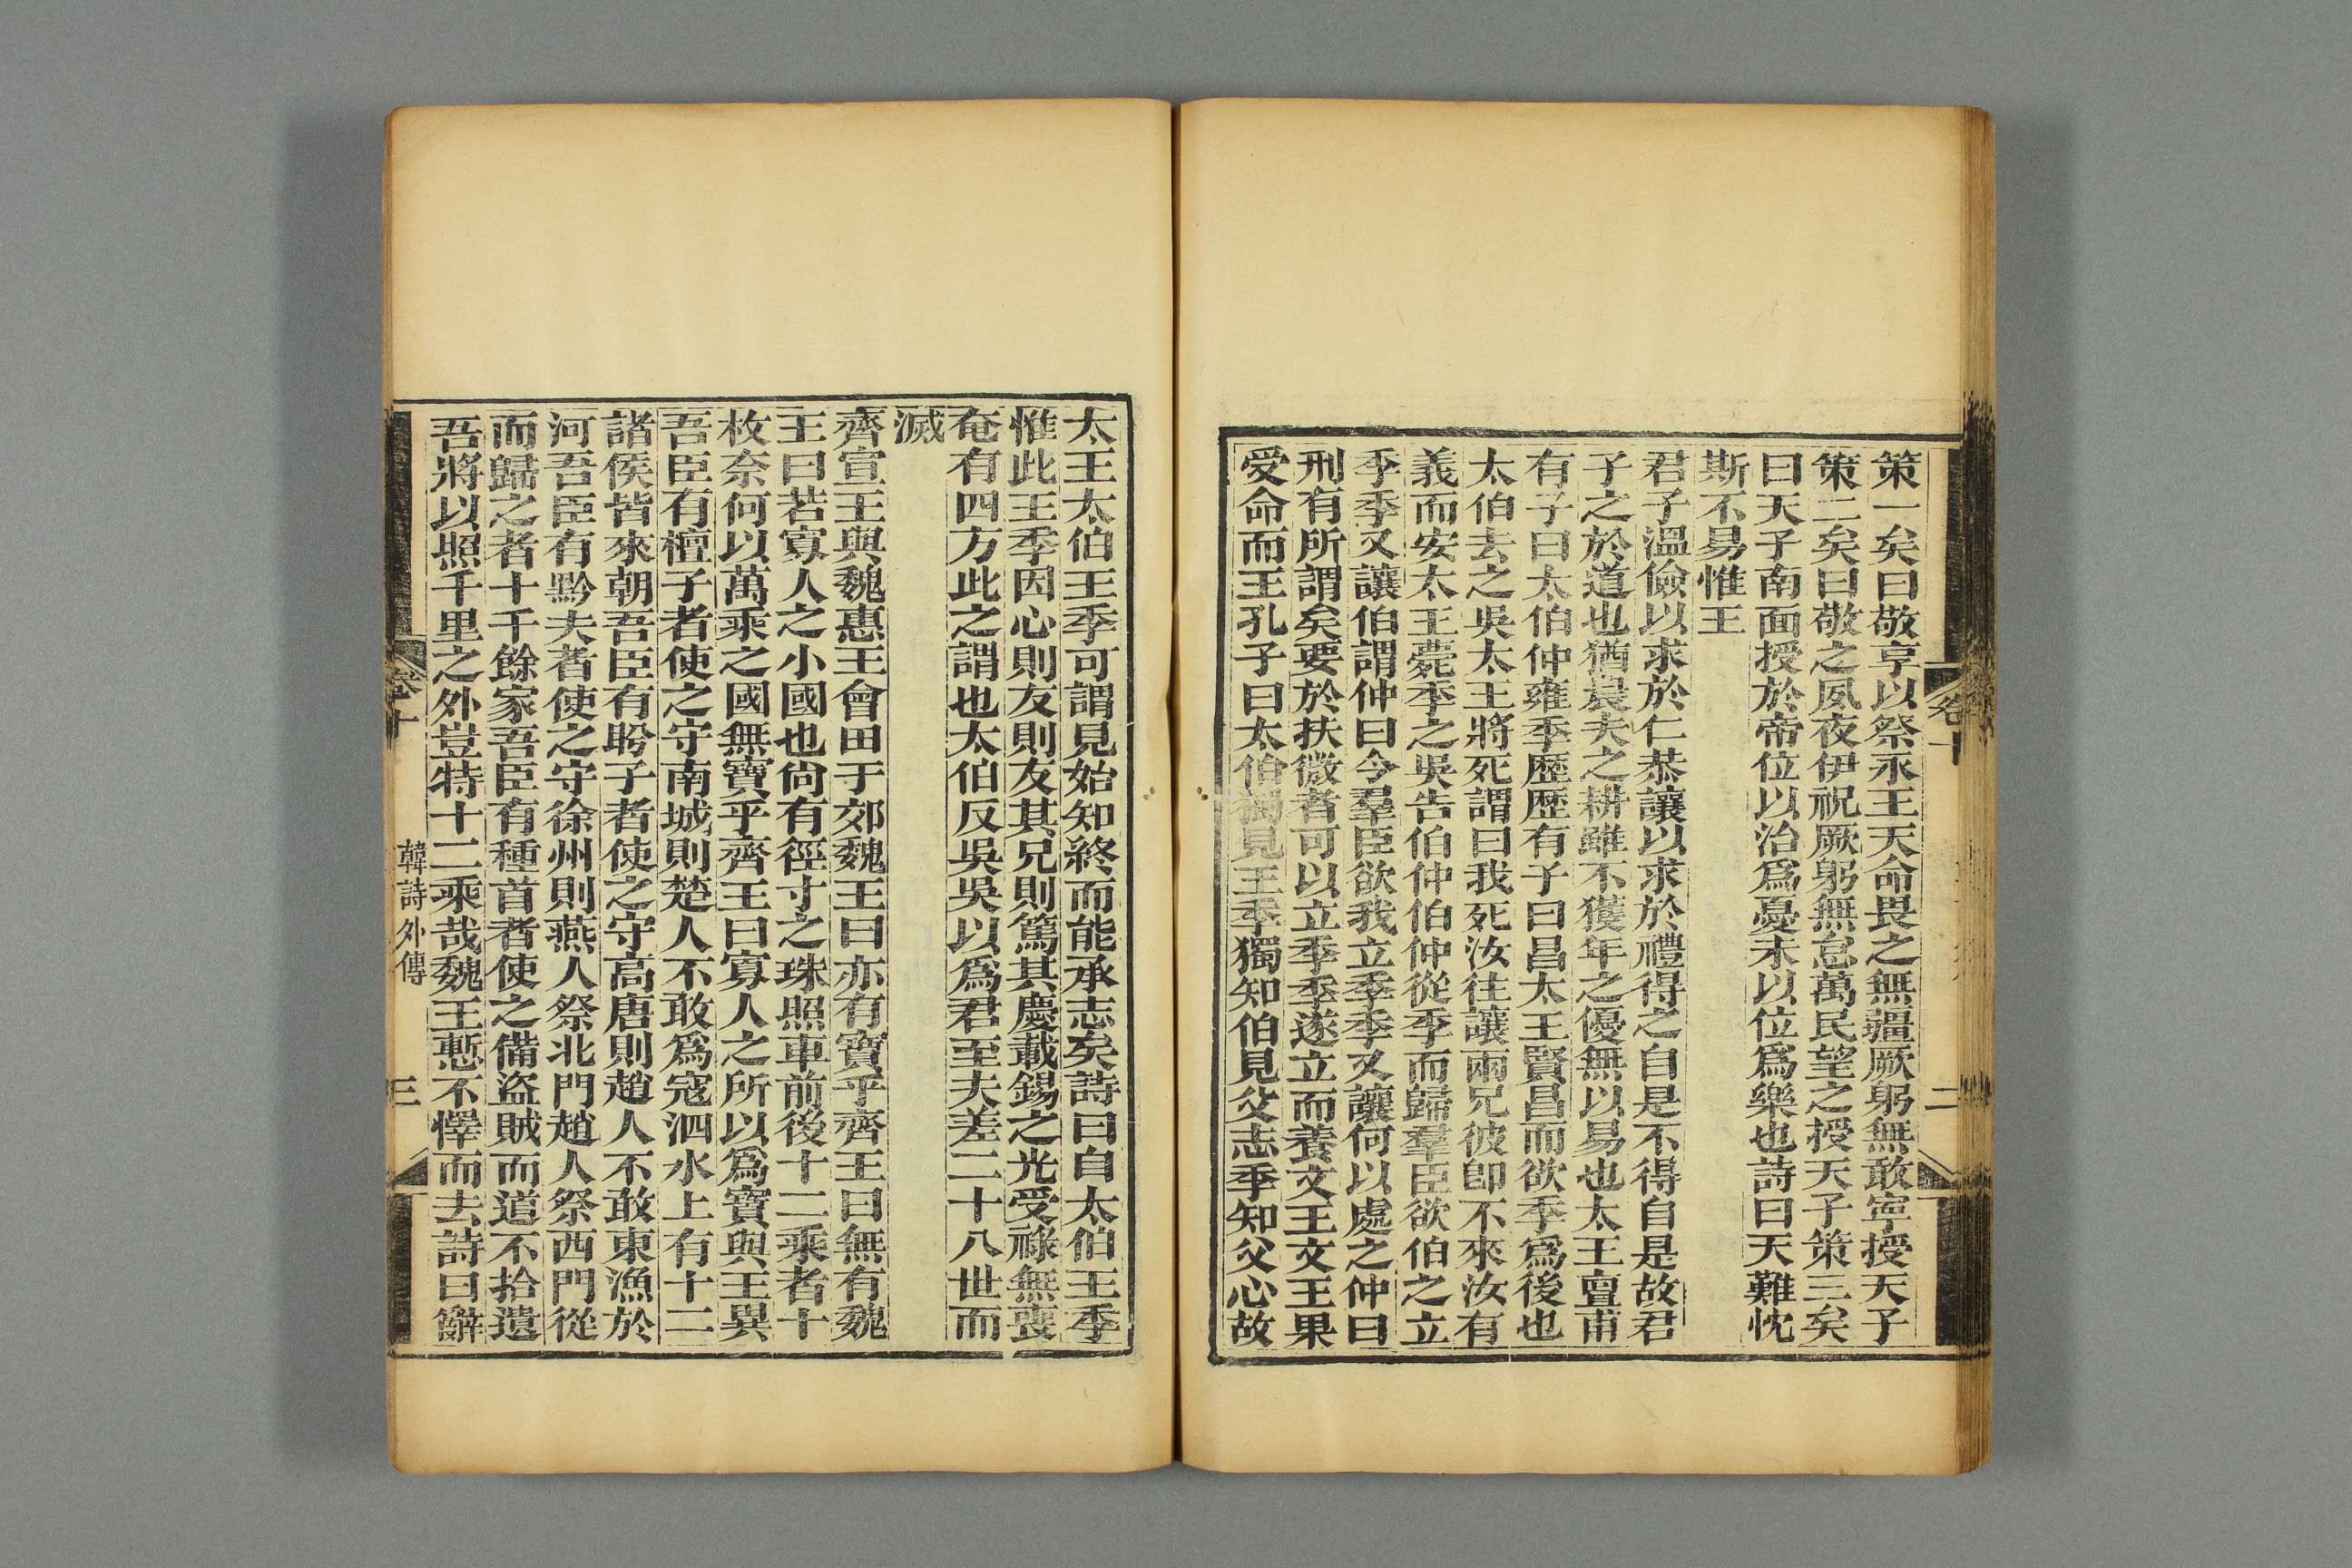 策一矣曰敬享以祭永王天命畏之無疆厥躬無敢寧授天子
策二矣曰敬之夙夜伊祝厥躬無怠萬民望之授天子策三矣
曰天子南面授於帝位以治爲憂未以位爲樂也詩曰天難忱
斯不易惟王
君子溫儉以求於仁恭讓以求於禮得之自是不得自是故君
子之於道也猶農夫之耕雖不獲年之優無以易也太王亶甫
有子曰太伯仲雍季歷歷有子曰昌太王賢昌而欲季爲後也
太伯去之吳太王將死謂曰我死汝往讓兩兄彼卽不來汝有
義而安太王薨季之吳告伯仲伯仲從季而歸羣臣欲伯之立
季季又讓伯謂仲曰今羣臣欲我立季季又讓何以處之仲曰
刑有所謂矣要於扶微者可以立季季遂立而養文王文王果
受命而王孔子曰太伯獨見王季獨知伯見父志季知父心故
卷十
二
太王太伯王季可謂見始知終而能承志矣詩曰自太伯王季
惟此王季因心則友則友其兄則篤其慶載錫之光受祿無喪
奄有四方此之謂也太伯反吳吳以爲君至夫差二十八世而
滅
齊宣王與魏惠王會田于郊魏王曰亦有寶乎齊王曰無有魏
王曰若寡人之小國也尙有徑寸之珠照車前後十二乘者十
枚奈何以萬乘之國無寶乎齊王曰寡人之所以爲寶與王異
吾臣有檀子者使之守南城則楚人不敢爲寇泗水上有十二
諸侯皆來朝吾臣有盼子者使之守高唐則趙人不敢東漁於
河吾臣有黔夫者使之守徐州則燕人祭北門趙人祭西門從
而歸之者十千餘家吾臣有種首者使之備盜賊而道不拾遺
吾將以照千里之外豈特十二乘哉魏王慙不懌而去詩曰辭
卷十
韓詩外傳
三